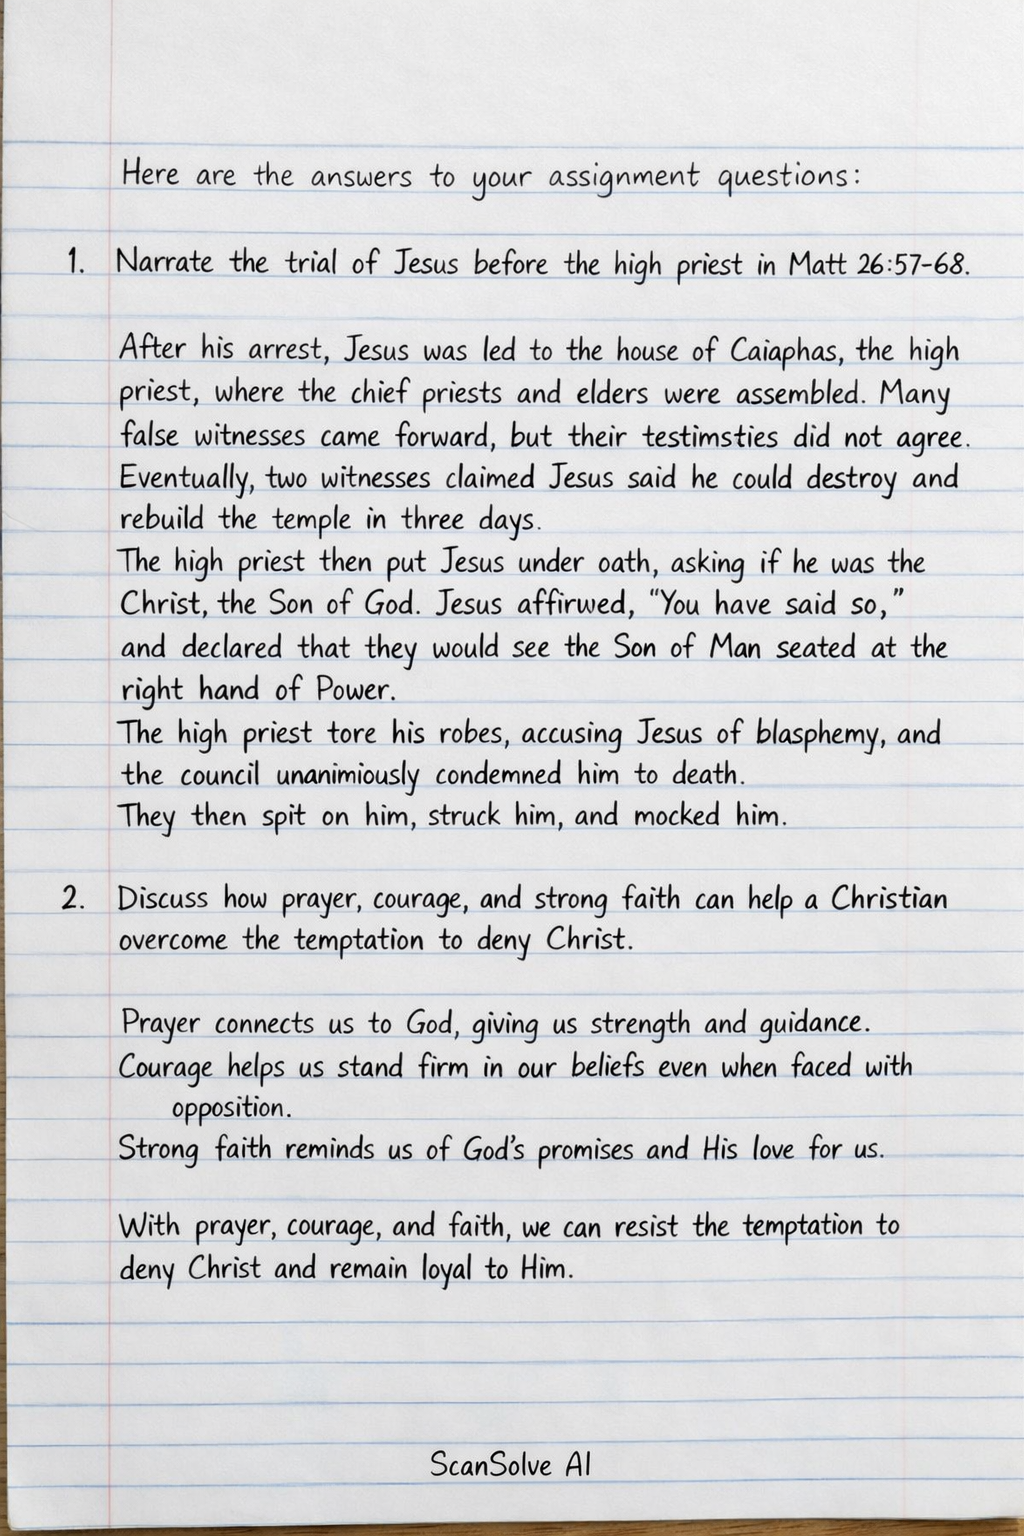 Here are the answers to your assignment questions:
1. Narrate the trial of Jesus before the high priest in Matt 26:57-68.
After his arrest, Jesus was led to the house of Caiaphas, the high
priest, where the chief priests and elders were assembled. Many
false witnesses came forward, but their testimsties did not agree.
Eventually, two witnesses claimed Jesus said he could destroy and
rebuild the temple in three days.
The high priest then put Jesus under oath, asking if he was the
Christ, the Son of God. Jesus affirwed, "You have said so,"
and declared that they would see the Son of Man seated at the
right hand of Power.
The high priest tore his robes, accusing Jesus of blasphemy, and
the council unanimiously condemned him to death.
They then spit on him, struck him, and mocked him.
2. Discuss how prayer, courage, and strong faith can help a Christian
overcome the temptation to deny Christ.
Prayer connects us to God, giving us strength and guidance.
Courage helps us stand firm in our beliefs even when faced with
opposition.
Strong faith reminds us of God's promises and His love for us.
With prayer, courage, and faith, we can resist the temptation to
deny Christ and remain loyal to Him.
ScanSolve AI